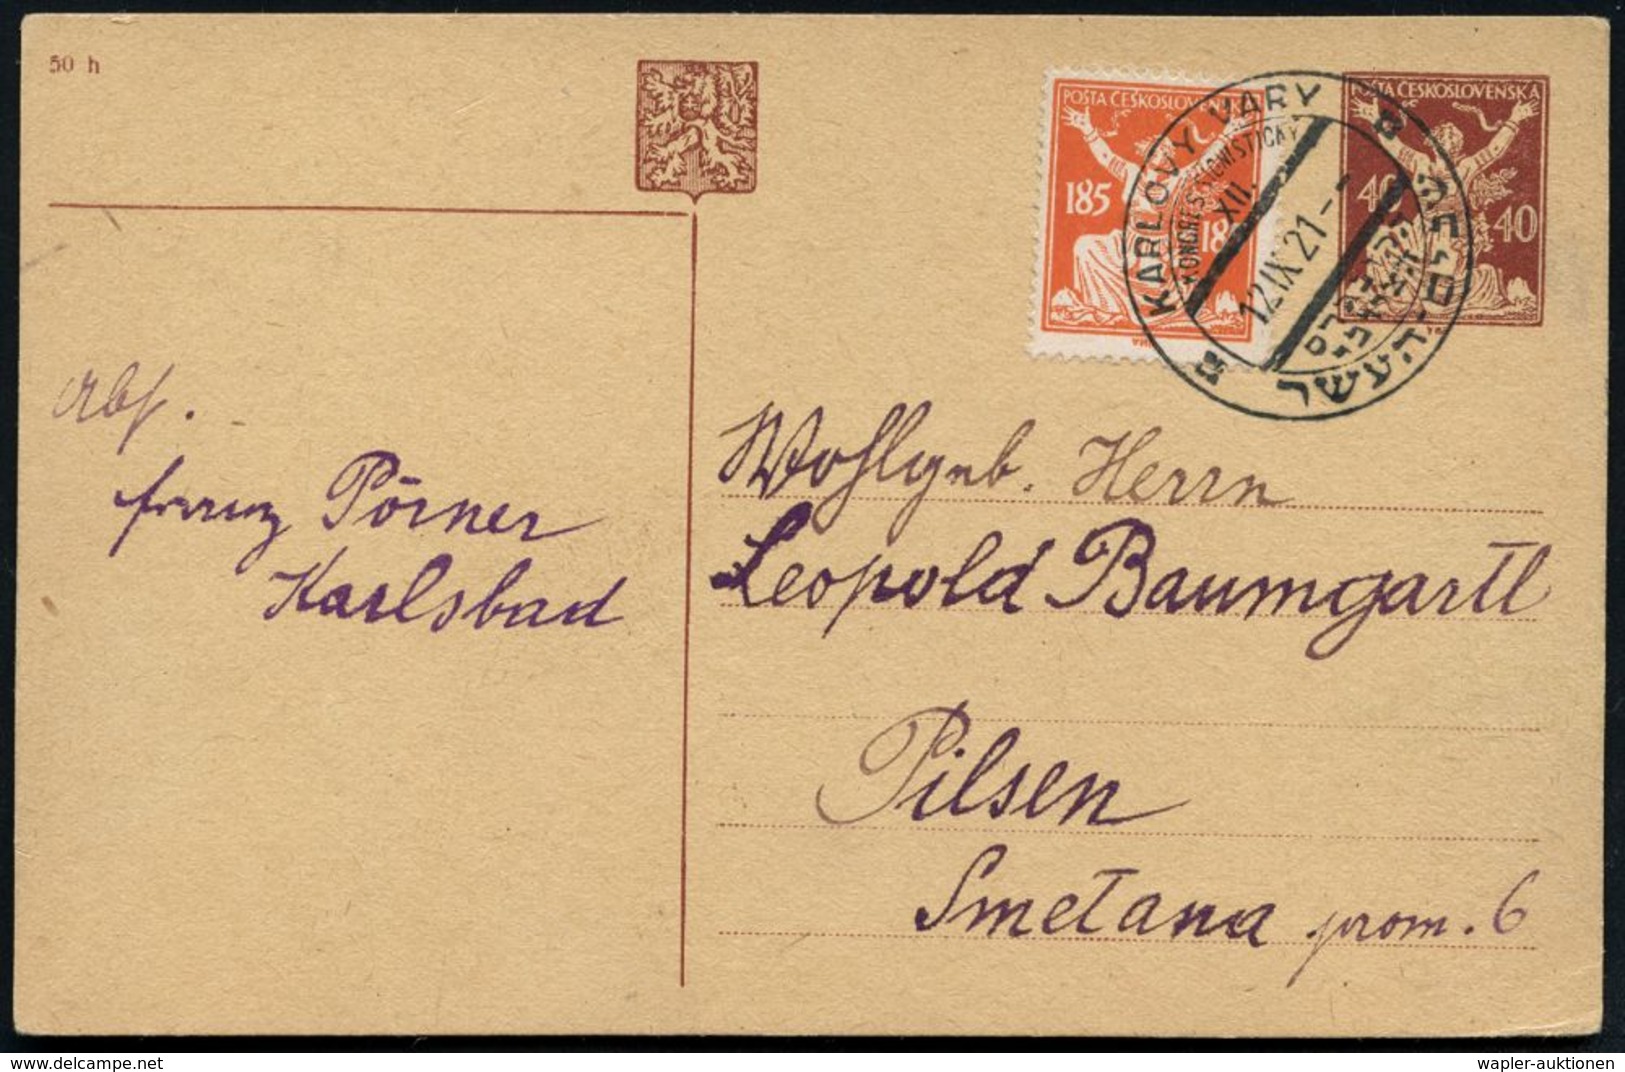 50 h
POŠTA ČESKOSLOVENSKÁ
185
18
POŠTA ČESKOSLOVENSKÁ
40
40
KARLOVY VARY
KONGRES SIONISTICKÝ
XII.
12.IX.21-
Abs.
Franz Pörner
Karlsbad
Wohlgeb. Herrn
Leopold Baumgartl
Pilsen
Smetana prom. 6
delcampe.net
wapler-auktionen